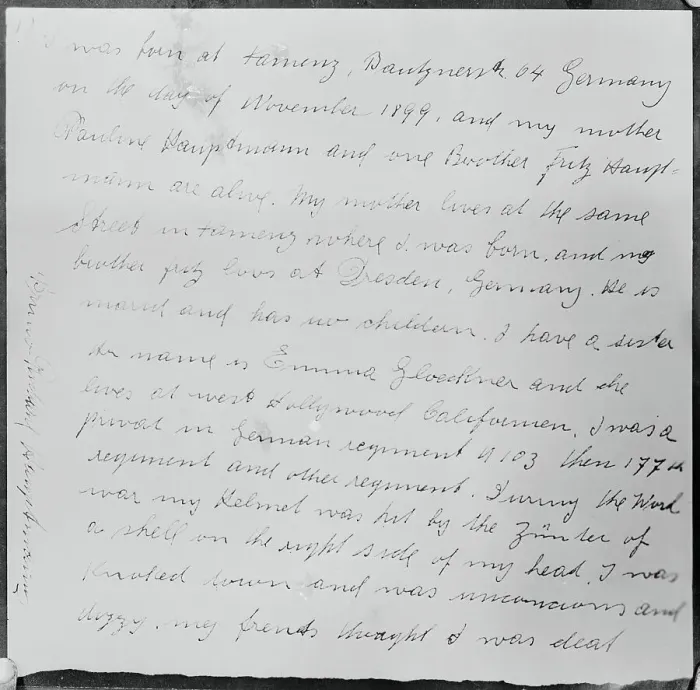 I was born at Kamenz, Bautznerstr. 64 Germany
on the day of November 1899, and my mother
Pauline Hauptmann and one Broother Fritz Haupt=
mann are alive. My mother lives at the same
Street in Kamenz where I was born, and my
brother fritz livs at Dresden, Germany. He is
marid and has no children. I have a sister
hr name is Emma Gloeckner and che
lives at west Hollywood Californien. I was a
privat in German regiment N 103 then 177th
regiment and other regiment. During the World
war my Helmet was hit by the Zünter of
a shell on the right side of my head, I was
knoked town and was unconcious and
dizzy, my frends thought I was deat
Bruno Richard Hauptmann